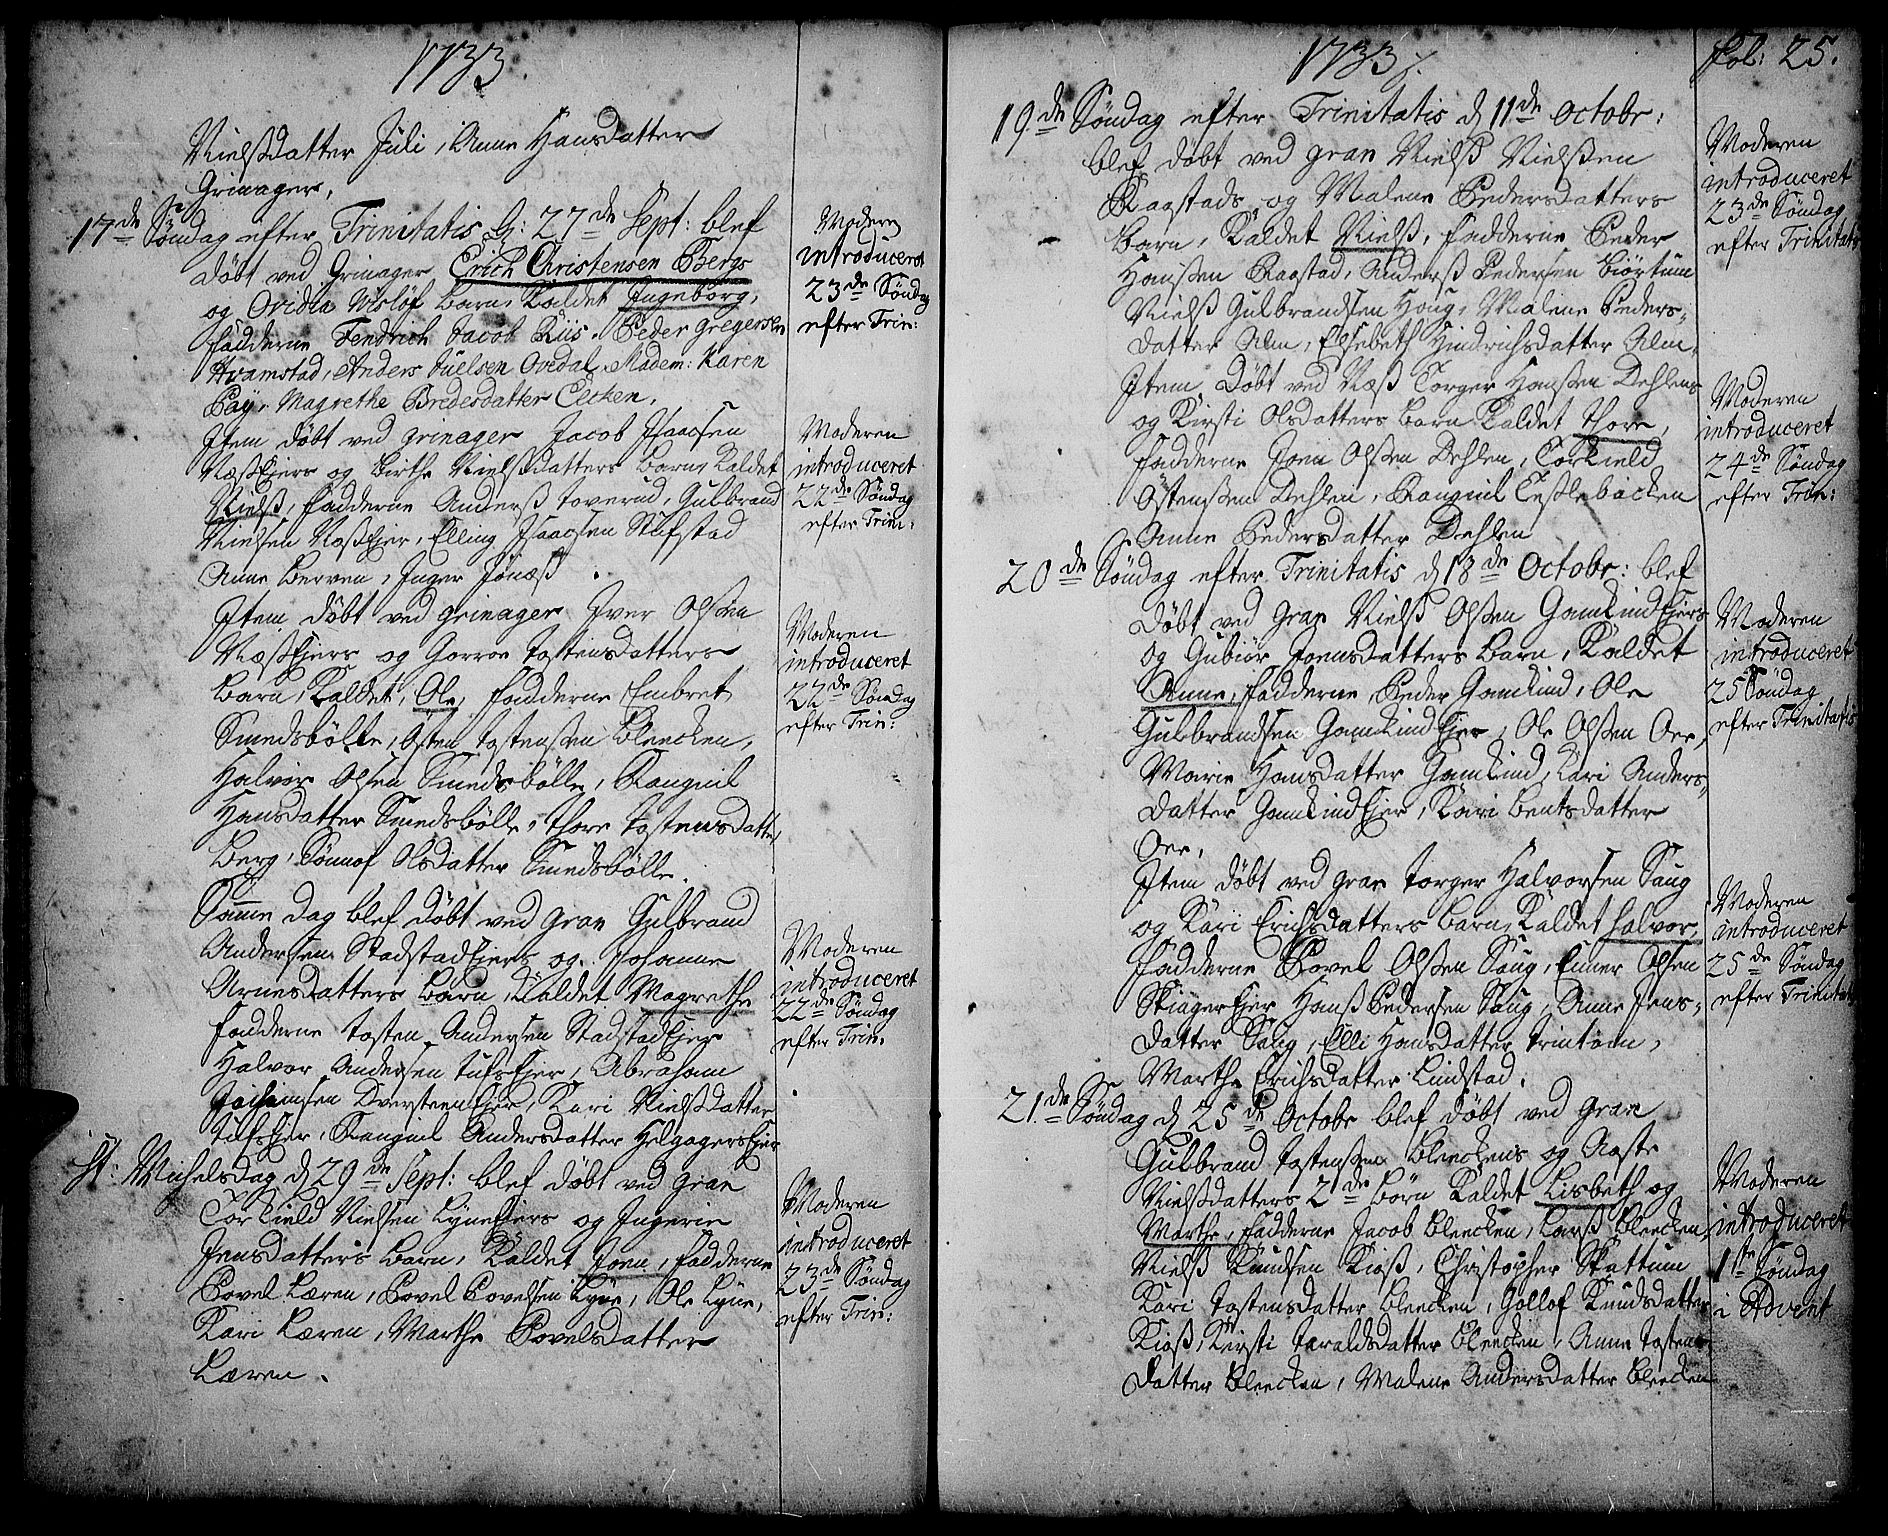 1733.
Nielsdatter Juli, Anne Hansdatter
Grinager,
17de Søndag efter Trinitatis d: 27de Sept: blef
døbt ved Grinager Erich Christensen Bergs
og Ovidia Wslöf barn, kaldet Ingeborg,
fadderne Fendrich Jacob Riis, Peder Gregersen
Hvamstad, Anders Juelsen Ovedal, Madem: Karen
Paÿ, Magrethe Bredesdatter Ecken,
Item døbt ved grinager Jacob Isaacsen
Næssejers og Birthe Nielsdatters barn, kaldet
Niels, fadderne Anders Toverud, Gulbrand
Nielsen Næssejer, Elling Isaacsen Stufstad
Anne Berven, Inger
Item døbt ved grinager Iver Olsen
Næssejers og Gorroe Tostensdatters
barn, kaldet, Ole, fadderne Embret
Smedsbölle, Östen Tostensen Bleecken,
Halvor Olsen Smedsbölle, Rangnil
Hansdatter Smedsbölle, Thore Tostensdatter
Berg, Sønnof Olsdatter Smedsbölle.
Samme dag blef døbt ved gran Gulbrand
Andersen Stadstadejers og Johanne
Arnesdatters barn, kaldet Magrethe
fadderne Tosten Andersen Stadstadejer
Halvor Andersen Tufsejer, Abraham
Jochimsen Dversteenejer, Kari Nielsdatter
Tufsejer, Rangnil Andersdatter Helgagersejer
St: Michelsdag d 29de Sept: blef døbt ved gran
Torkield Nielsen Lyneejers og Ingerie
Jensdatters barn, kaldet Joen, fadderne
Povel Læren, Povel Povelsen Lyne, Ole Lyne,
Kari Læren, Marthe Povelsdatter
Læren.
Moderen
introduceret
23de Søndag
efter Trin:
Moderen
introduceret
22de Søndag
efter Trin:
Moderen
introduceret
22de Søndag
efter Trin:
Moderen
introduceret
22de Søndag
efter Trin:
Moderen
introduceret
23de Søndag
efter Trin:
1733
fol: 25.
19de Søndag efter Trinitatis d 11de Octobr:
blef døbt ved gran Niels Nielsen
Raastads og Malene Pedersdatters
barn, kaldet Niels, fadderne Peder
Hansen Raastad, Anders Pedersen Biörtum
Niels Gulbrandsen Houg, Malene Peders-
datter Alm, Elsebeth Hindrichsdatter Alm.
Item døbt ved Næs Torger Hansen Dehlens
og Kirsti Olsdatters barn kaldet Thore,
fadderne Joen Olsen Dehlen, Torkield
Östensen Dehlen, Rangnil
Anne Pedersdatter Dehlen
20de Søndag efter Trinitatis d 18de Octobr: blef
døbt ved gran Niels Olsen Gamkindejers
og Gubiör Joensdatters barn, kaldet
Anne, fadderne Peder Gamkind, Ole
Gulbrandsen Gamkindejer, Ole Olsen Oer,
Marie Hansdatter Gamkind, Kari Anders-
datter Gamkindejer, Kari Bentsdatter
Oer,
Item døbt ved gran Torger Halvorsen Saug
og Kari Erichsdatters barn, kaldet Halvor,
fadderne Povel Olsen Saug, Einer Olsen
Skiagerejer, Hans Pedersen Saug, Anne Jens-
datter Saug, Elli Hansdatter
Marthe Erichsdatter Lindstad.
21de Søndag d 25de Octobr blef døbt ved gran
Gulbrand Tostensen Bleeckens og Aaste
Nielsdatters 2de børn kaldet Lisbeth og
Marthe, fadderne Jacob Bleecken, Lars Bleecken,
Niels Knudsen Kios, Christopher Skattum
Kari Tostensdatter Bleecken, Gollof Knudsdatter
Kios, Kirsti Taraldsdatter Bleecken, Anne Tostens-
datter Bleecken, Malene Andersdatter Bleecken
Moderen
introduceret
23de Søndag
efter Trinitatis
Moderen
introduceret
24de Søndag
efter Trin:
Moderen
introduceret
25 Søndag
efter Trinitatis
Moderen
introduceret
25de Søndag
efter Trinitatis
Moderen
introduceret
1ste Søndag
i Advent